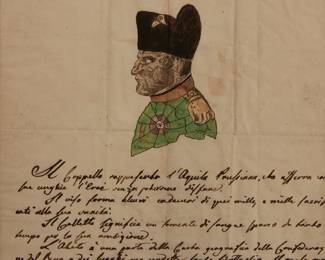 Il Cappello rappresenta l'Aquila Prussiana, che afferra con
sue unghie l'Eroe senza potersene disfare.
Il viso forma alcuni cadaveri di quei mille, e mille sacrifi
cati alla sua vanità.
Il Colletto significa un torrente di sangue sparso da tanto
tempo per la sua ambizione.
L'Abito è una parte della Carta geografica della Confederaz
ne del Reno e dei